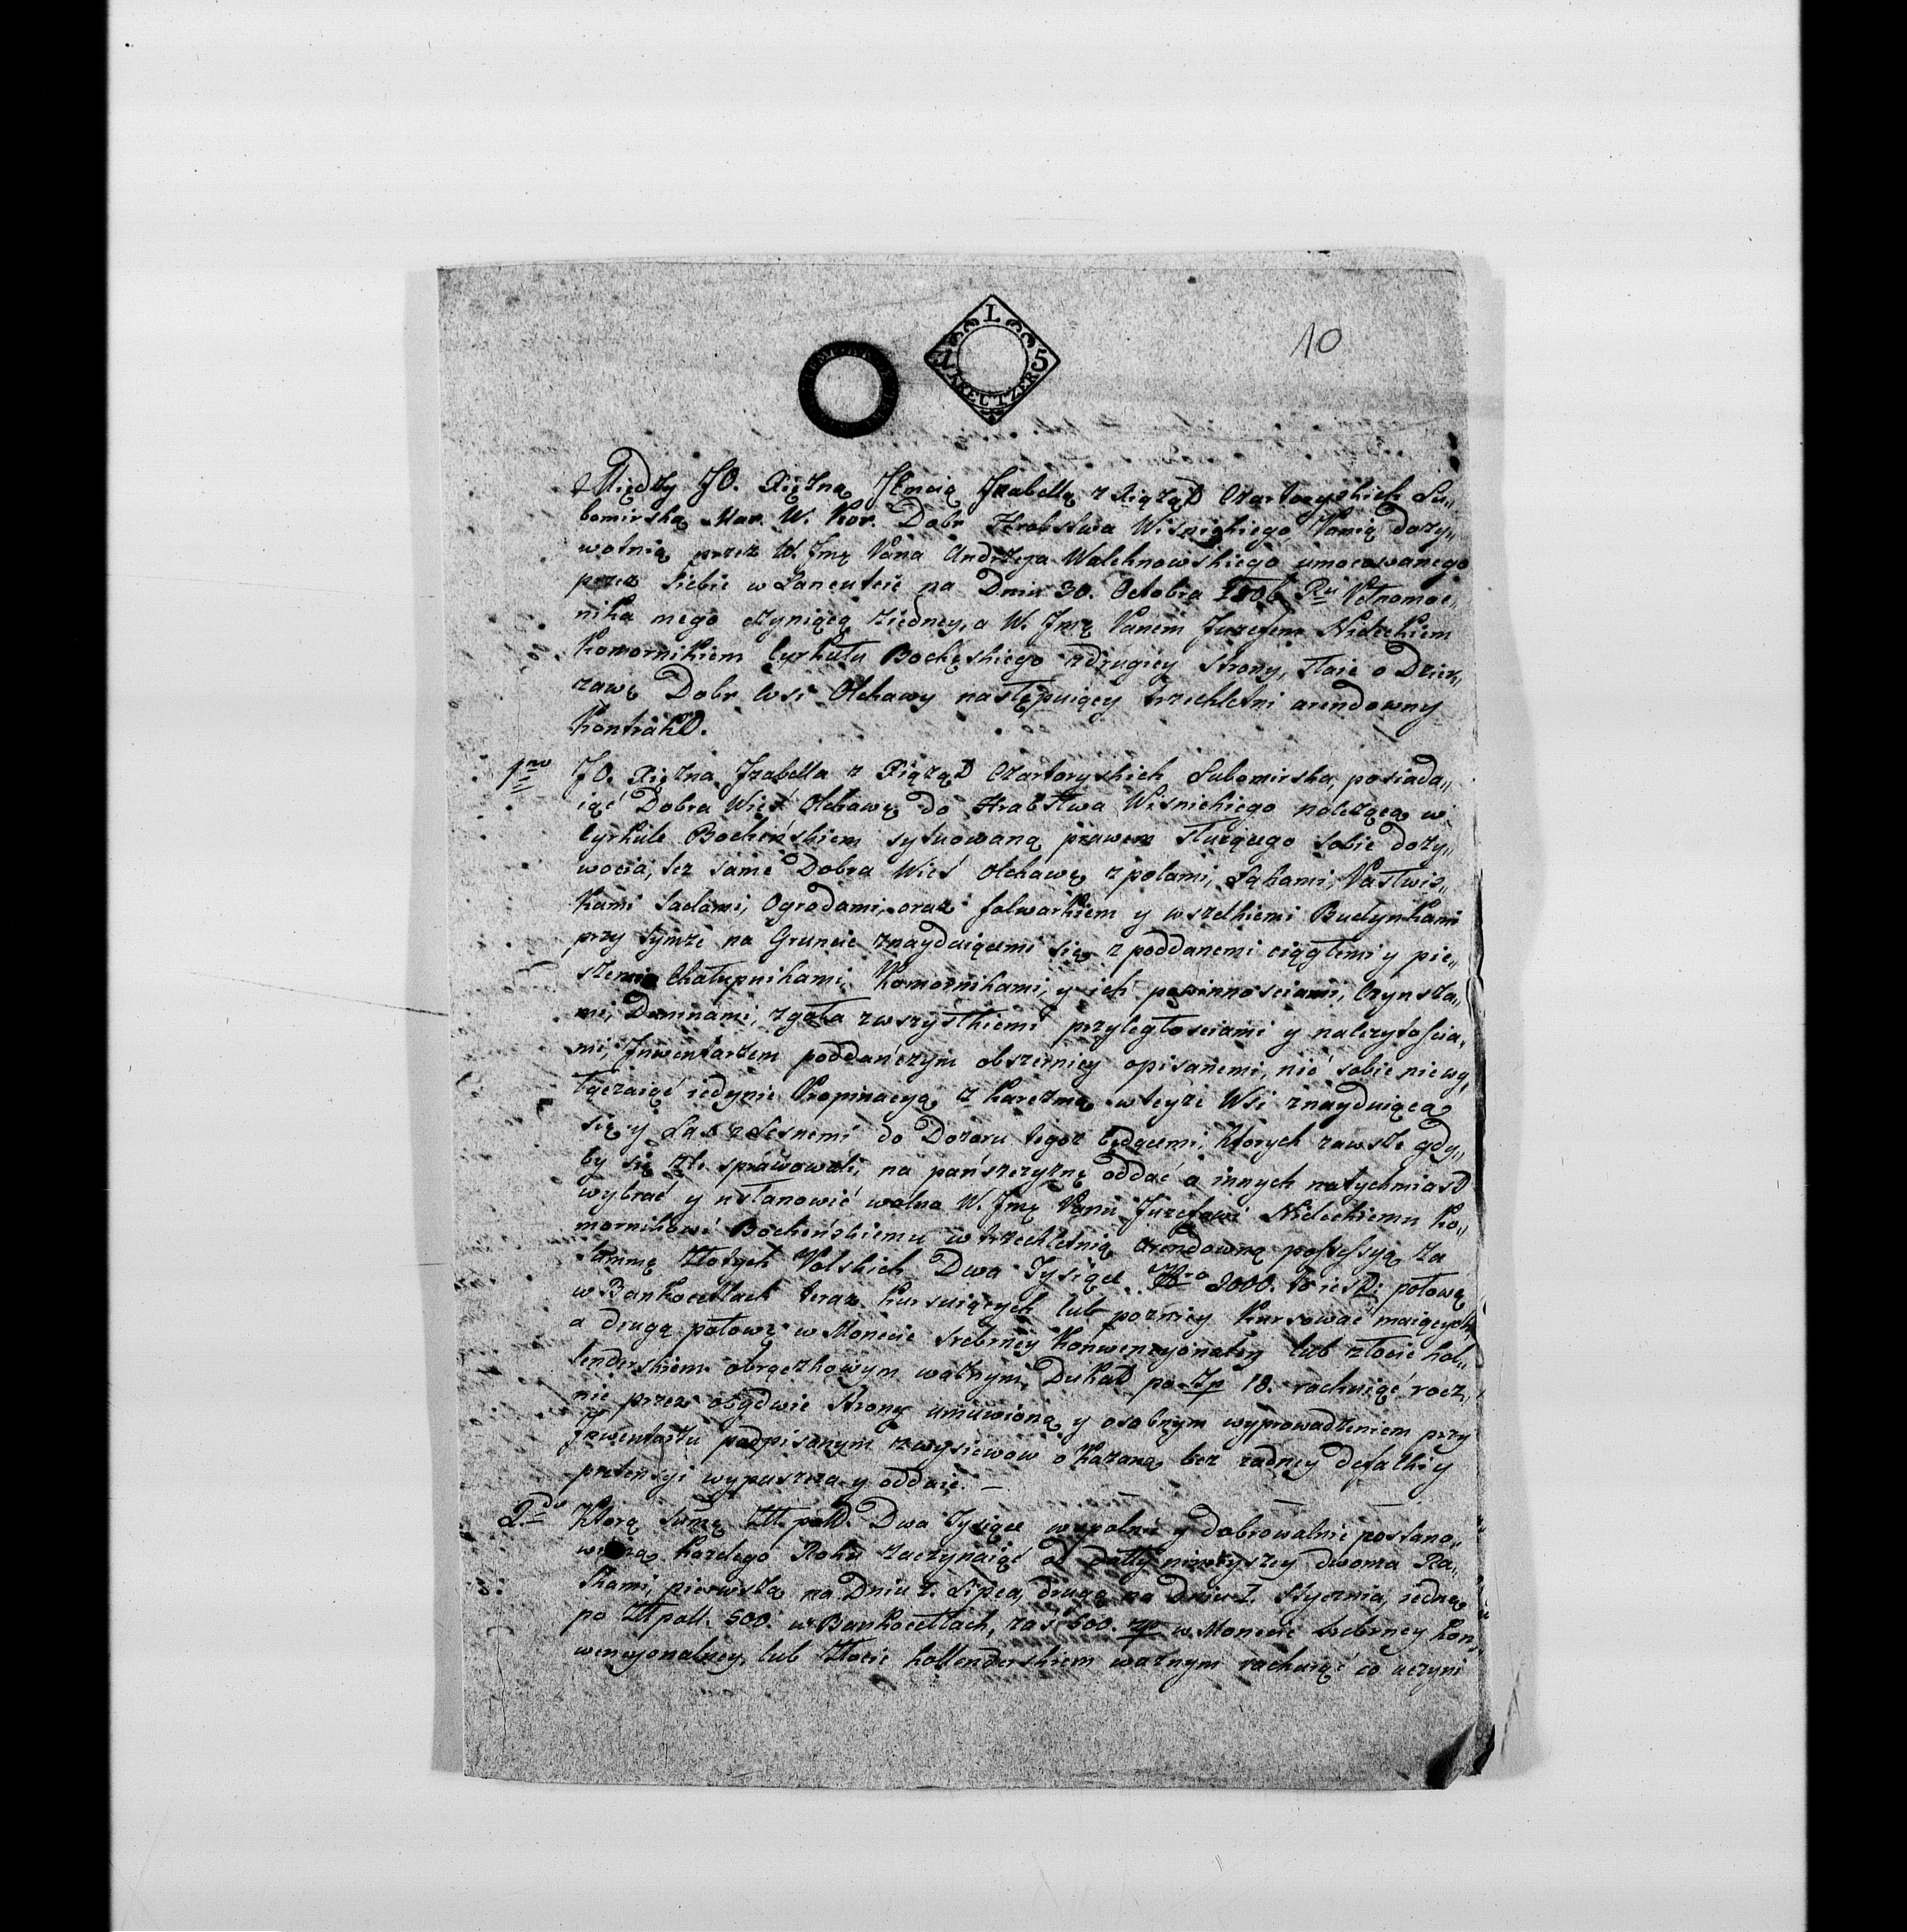 10
L
1 5
KREUTZER
Między JO. Xiężną JEmcią Izabellą z Xiążąd Czartoryskich Lu„
bomirską Mar. W. Kor. Dobr Hrabstwa Wisnickiego Panią doży„
wotnią przez W. Jmę Pana Andrzeja Walchnowskiego umocowanego
przez siebie w Lancucie na Dniu 30. Octobra 1806 Ru Pełnomoc„
nika mego czyniącą ziedney, a W. Jmę Panem Juzefem Nideckiem
Komornikiem Cyrkułu Bocheskiego z drugiey strony, staie o Dzier„
zawę Dobr Wsi Olchawy następuiący trzechletni arendowny
Kontrakd.
1mo JO. Xiężna Izabella z Xiążąd Czartoryskich Lubomirska, posiada„
iąc Dobra Wieś Olchawę do Hrabstwa Wisnickiego należącą w
Cyrkule Bocheńskiem sytuowaną prawem służącego sobie doży„
wocia, też same Dobra Wieś Olchawę z polami, Łąkami, Pastwis„
kami Sadami, Ogrodami, oraz folwarkiem y wszelkiemi Budynkami
przy tymże na Gruncie znayduiącemi się, z poddanemi ciągłemi y pie„
szemi Chałupnikami, Komornikami, y ich powinnosciami, Czynsza„
mi, Daninami, zgoła zwszystkiemi przyległosciami y należytościa„
mi, Inwentarzem poddańczym obszerniey opisanemi, nic sobie niewy„
łączaiąc iedynie Propinacyą z karczmą w teyże Wsi znayduiącą
się, y Las z Lesnemi do Dozoru tegoż będącemi, ktorych zawsze gdy„
by się źle sprawowali, na pańszczyznę oddać a innych natychmiasd
wybrać y ustanowić wolno W. Jmę Panu Juzefowi Nideckiemu Ko„
mornikowi Bocheńskiemu w trzechletnią Arendowną possessyą za
summę Złotych Polskich Dwa Tysiące Nro 2000. to iesd: połowę
w Bankocetlach teraz kursuiących lub pozniey kursować maiących,
a drugą połowę w Monecie srebrney Konwencyonalney lub złocie hol„
lenderskiem obrączkowym ważnym, Dukad po Zp 18. rachuiąc rocz„
nie przez obydwie Strony umuwioną y osobnym wyprowadzeniem przy
Inwentarzu podpisanym zwysiewow okazaną bez żadney defalki y
pretensyi wypuszcza y oddaie. —
2do Którą Sumę Złł. pold. Dwa Tysiące wspolnie y dobrowolnie postano„
wioną każdego Roku zaczynaiąc od datty ninieyszey dwoma Ra„
tami, pierwszą na Dniu 1. Lipca, drugą na Dniu 1. Stycznia, iedną
po Złł poll. 500. w Bankocetlach, zaś 500. Zp w Monecie srebrney kon„
wencyonalney, lub Złocie hollenderskiem ważnym rachuiąc co uczyni